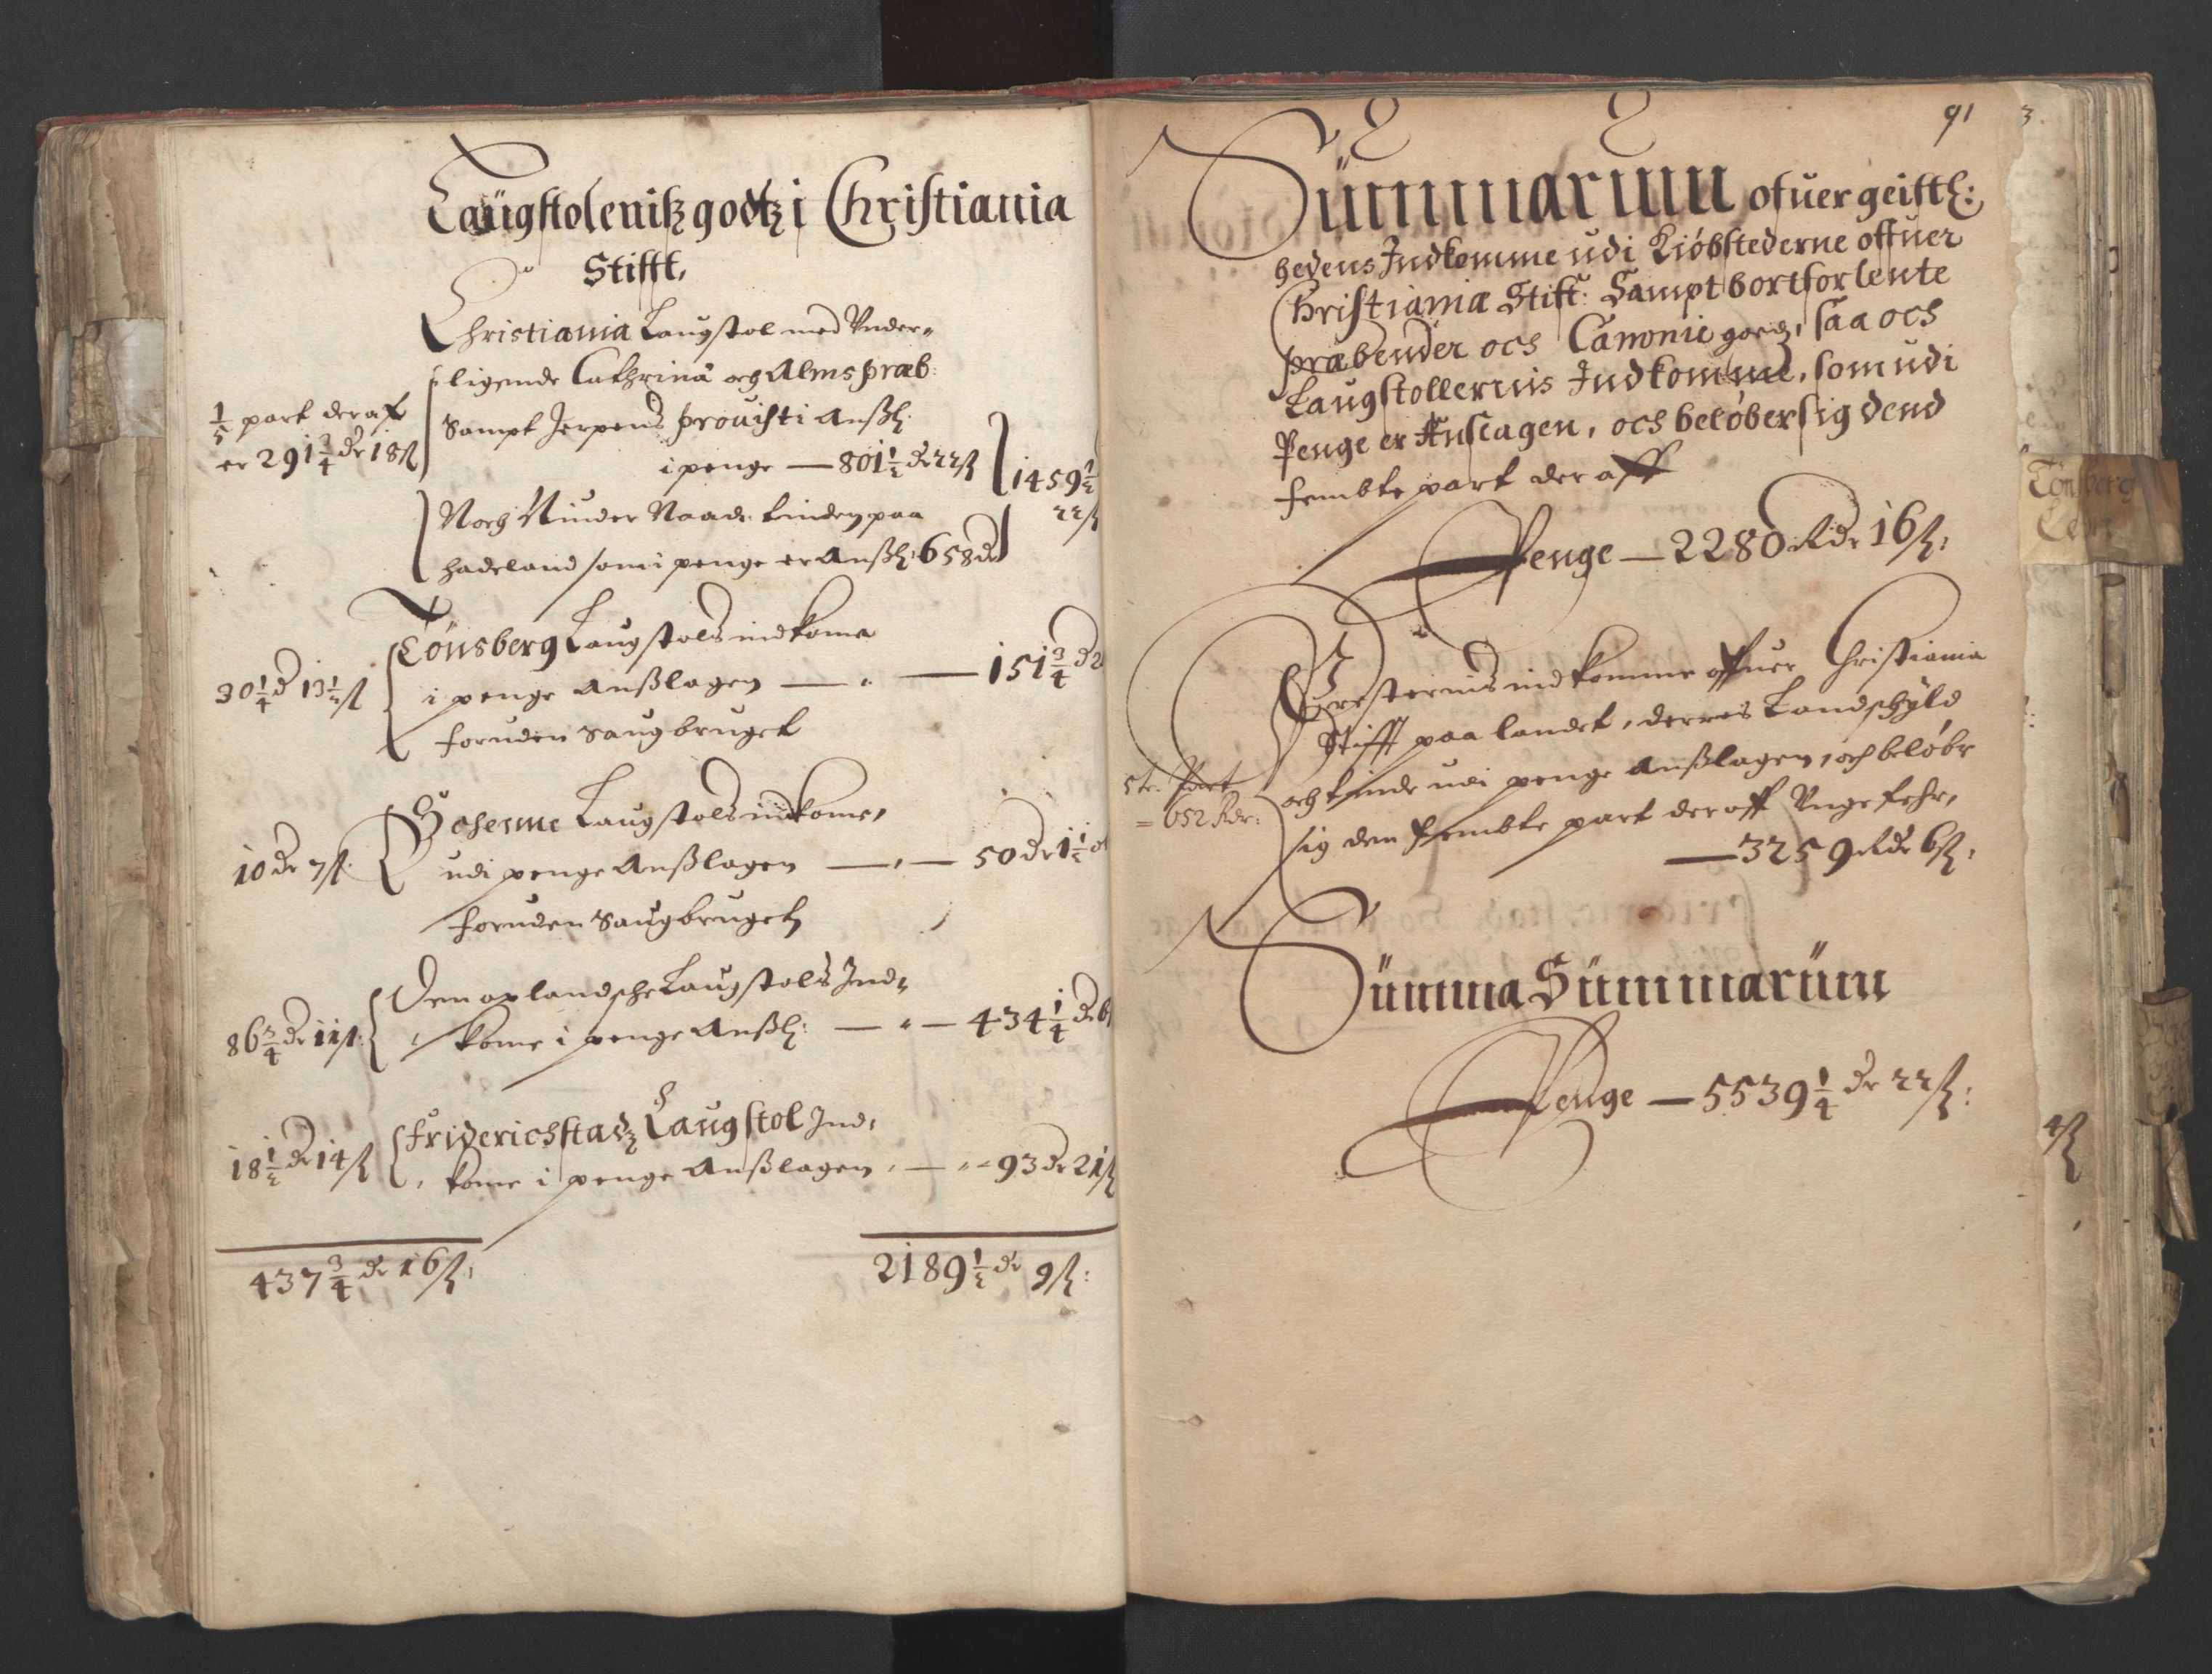 Laugstolenitz godtz i Christiania
Stifft,
Christiania Laugstol med Under-
ligende Cathrinæ och Alms præb:
Sampt Jerpens provisti Anszl:
i penge — 801 1/2 dr 22 ß
1459 1/2
22 ß
1/5 part der af
er 291 3/4 dr 18 ß
Noch Naade tinden paa
hadeland som i penge er Anszl: 658 dr
Tönsberg Laugstols indkome
i penge Anszlagen — 151 3/4 d
foruden Saugbruget
30 1/4 d 13 1/2 ß
Laugstols indkome,
udi penge Anszlagen — 50 dr 1 1/2
foruden Saugbruget
10 dr 7 ß
Den oplandsche Laugstols Ind-
kome i penge Anszl: — 434 1/4 dr 6
86 3/4 dr 11 ß:
Friderichstadz Laugstol Ind-
kome i penge Anszlagen, — 93 dr 21 ß
18 1/2 dr 14 ß
437 3/4 dr 16 ß,
2189 1/2 dr 9 ß:
91
Summarum ofuer geistl:
hedens Indkomme udi Kiöbstederne offuer
Christiania Stift: Sampt bortforlente
præbender och Canonie goedz, saa och
Laugstollernis Indkomme, som udi
Penge er Anslagen, och belöber sig dend
fembte part der aff
Penge — 2280 Rdr 16 ß:
Presternis indkomme offuer Christiania
Stifft paa landet, derres Landschyld
och tiende udi penge Anszlagen, och belöbr
sig den fembte part der aff Ungefehr,
— 3259 Rdr 6 ß,
5te Part
= 652 Rdr:
Summa Summarum
Penge — 5539 1/4 dr 22 ß:
3.
Tönsberg
Lehn
4 ß